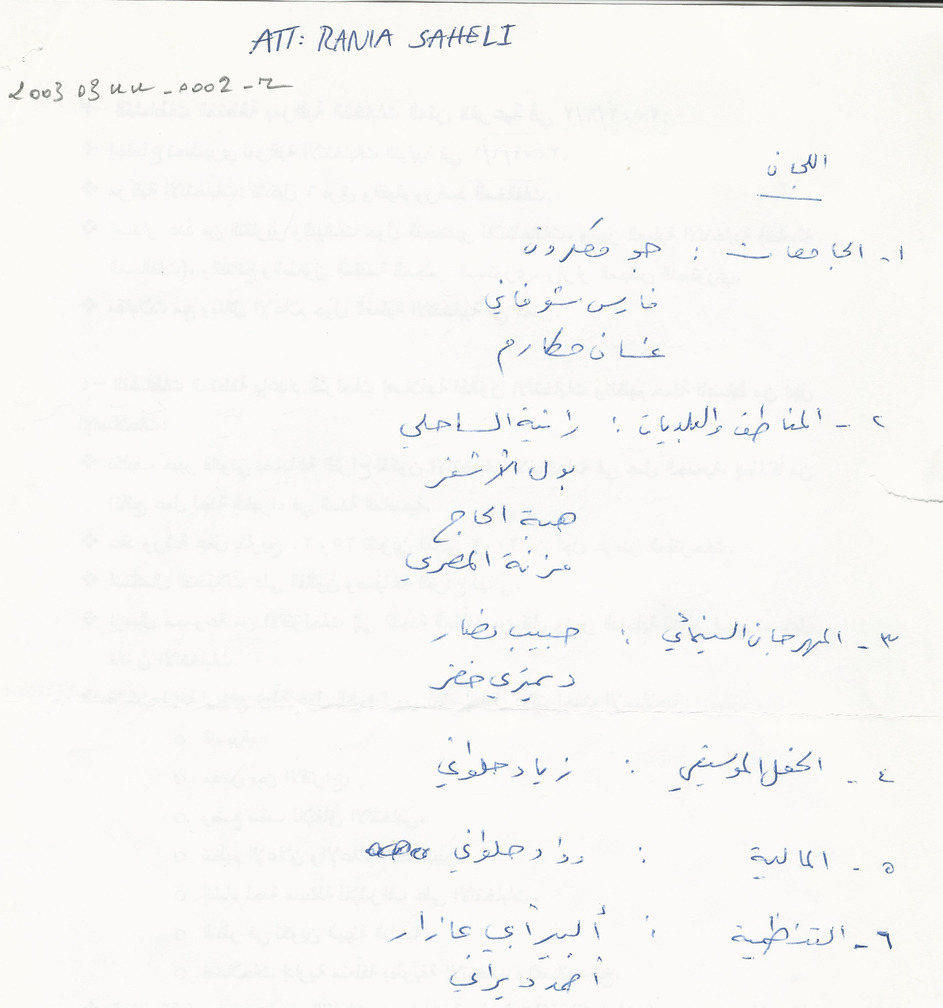 ATT: RANIA SAHELI
اللجان
١- الجامعات : جو
فارس شوفاني
غسان مكارم
٢- المناطق والبلديات : رانية الساحلي
بول الأشقر
هبة الحاج
مزنة المصري
٣- المهرجان السينمائي : حبيب نصار
ديمتري خضر
٤- الحفل الموسيقي : زياد حلواني
٥- المالية : رواد حلواني
٦- التنظيمية : ألبير أبي عازار
أحمد ديراني